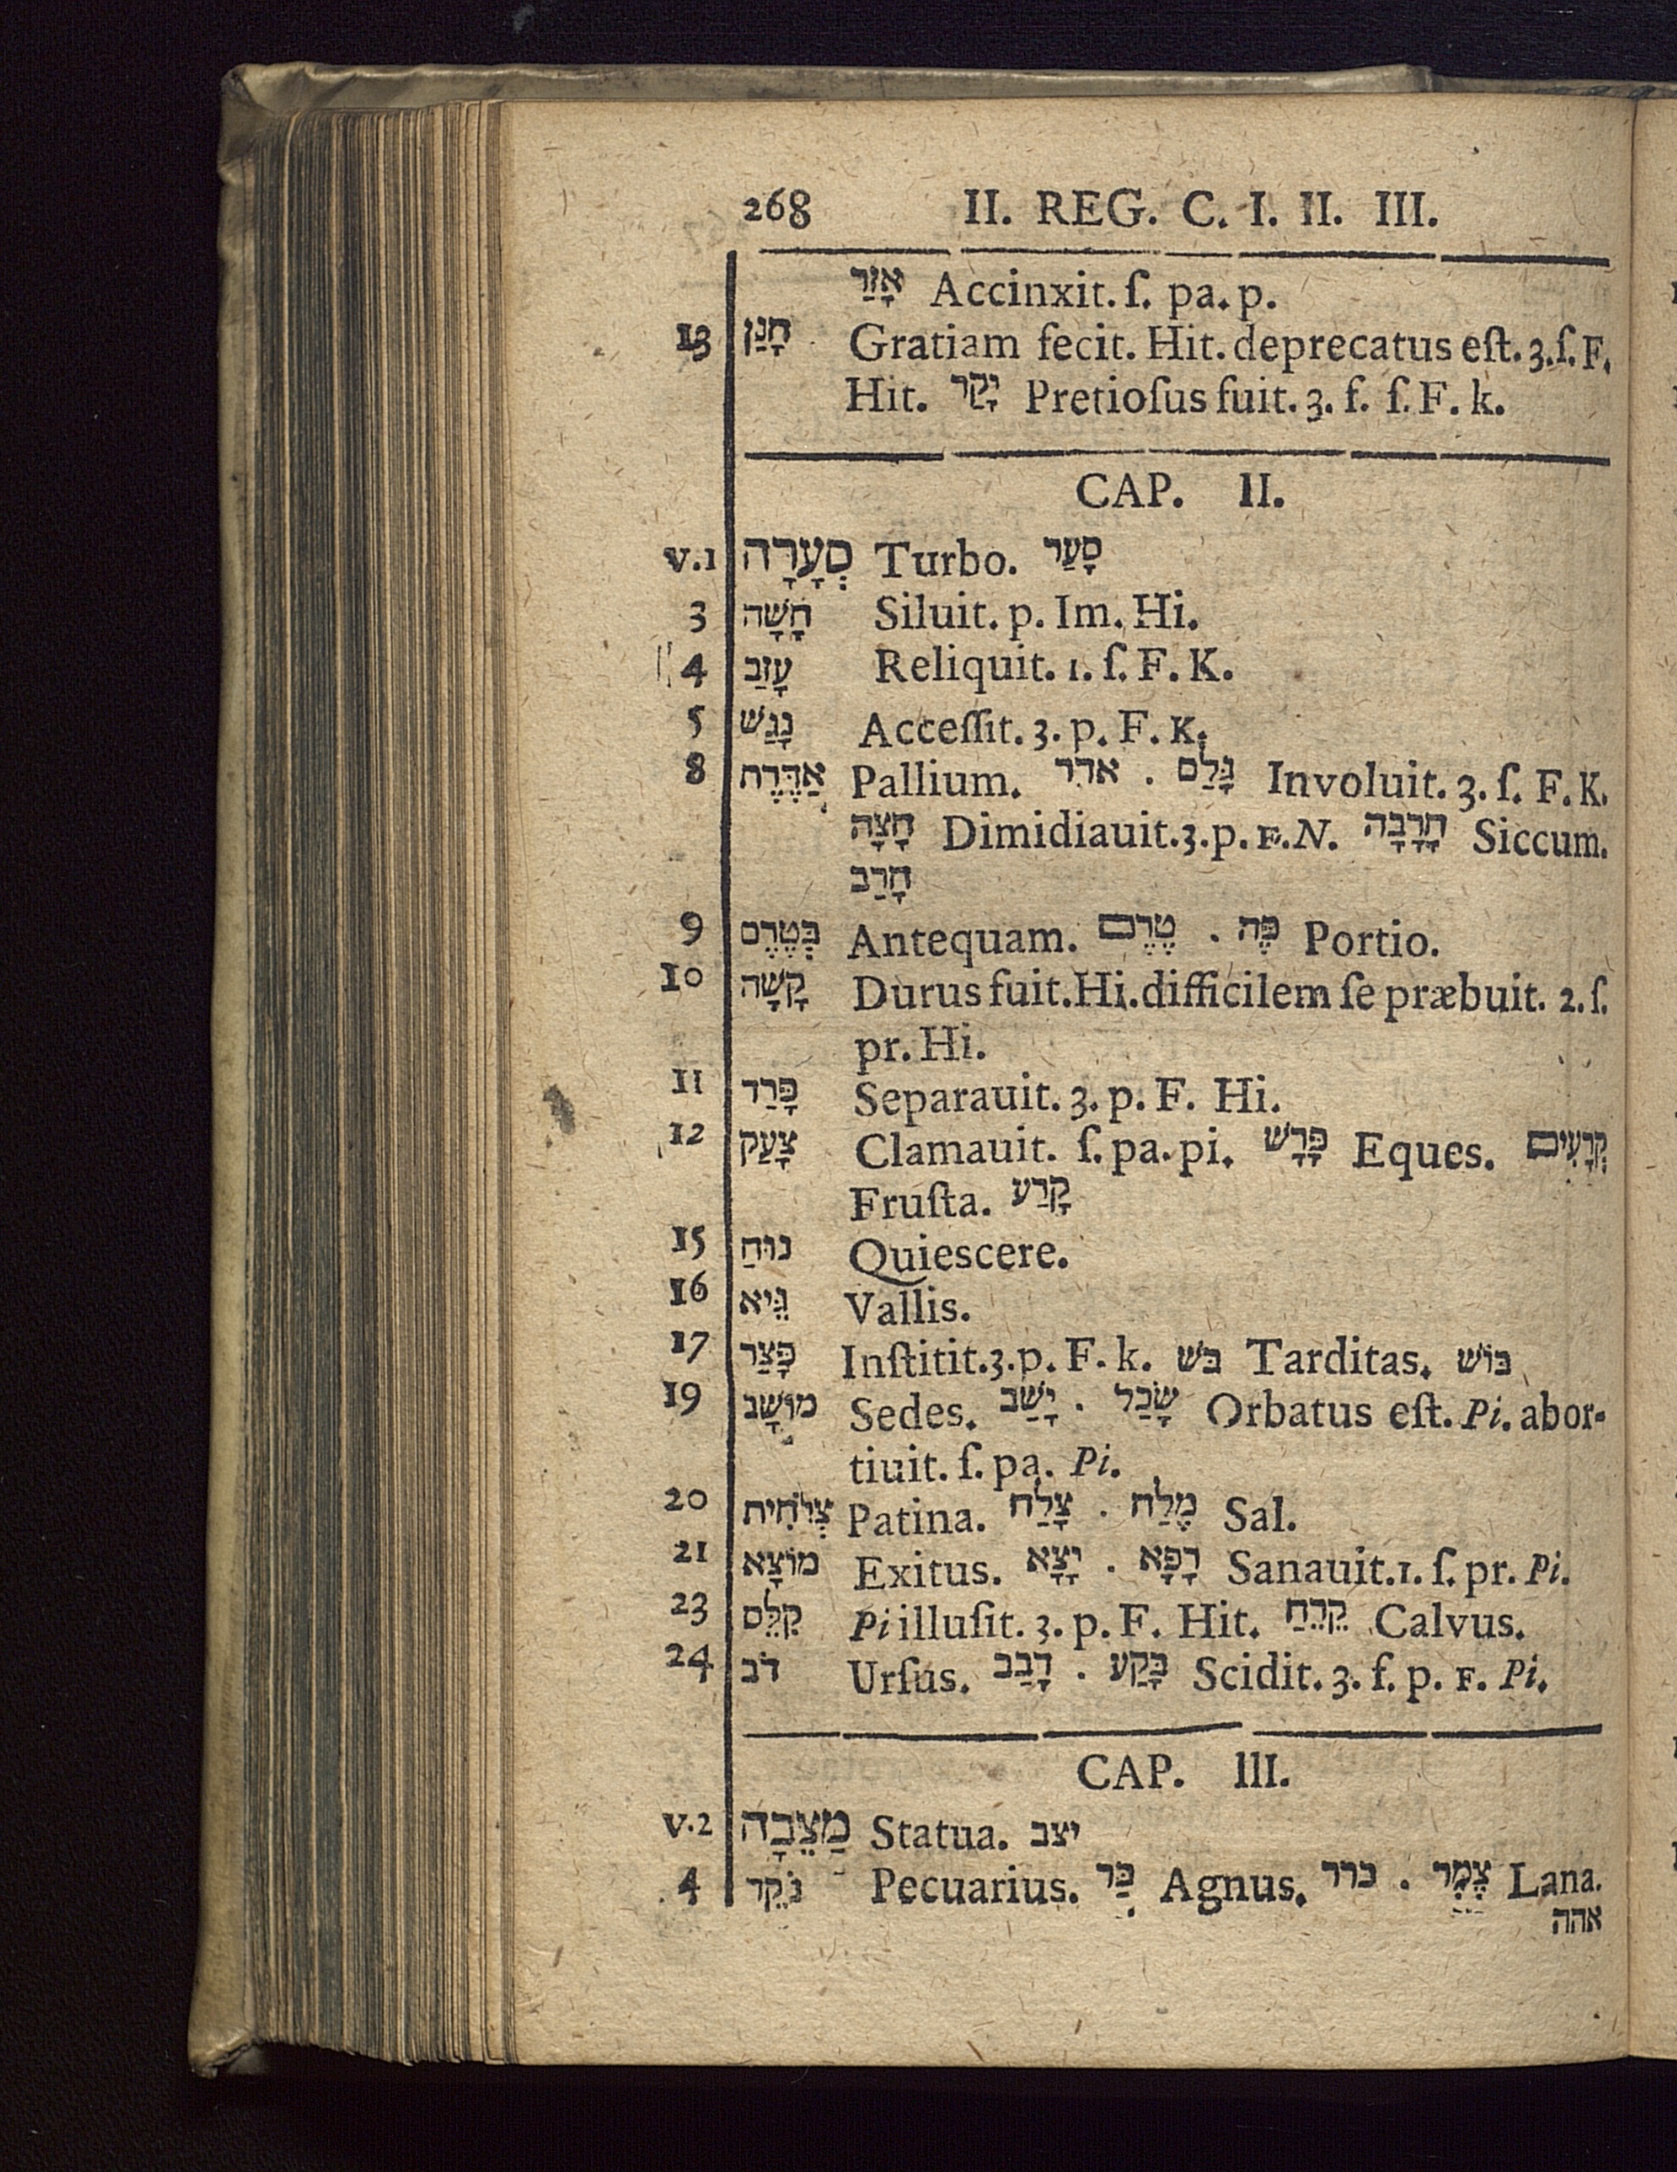 268 II. REG. C. I. II. III.
אָזַר Accinxit. ſ. pa. p.
13 חָנַן Gratiam fecit. Hit. deprecatus eſt. 3. ſ. F.
Hit. יָקַר Pretioſus fuit. 3. f. ſ. F. k.
CAP. II.
V. 1 סְעָרָה Turbo. סָעַר
3 חָשָׁה Siluit. p. Im. Hi.
4 עָזַב Reliquit. 1. ſ. F. K.
5 נָגַשׁ Acceſſit. 3. p. F. K.
8 אַדֶּרֶת Pallium. אדר . גָּלַם Involuit. 3. ſ. F. K.
חָצָה Dimidiauit. 3. p. F. N. חָרָבָה Siccum.
חָרַב
9 בְּטֶרֶם Antequam. טֶרֶם . פֶּה Portio.
10 קָשָׁה Durus fuit. Hi. difficilem ſe præbuit. 2. ſ.
pr. Hi.
11 פָּרַד Separauit. 3. p. F. Hi.
12 צָעַק Clamauit. ſ. pa. pi. פָּרָשׁ Eques. קְרָעִים
Fruſta. קָרַע
15 נוּחַ Quiescere.
16 גֵּיא Vallis.
17 פָּצַר Inſtitit. 3. p. F. k. בּשׁ Tarditas. בּוֹשׁ
19 מוֹשָׁב Sedes. יָשַׁב . שָׁכַל Orbatus eſt. Pi. abor-
tiuit. ſ. pa. Pi.
20 צְלֹחִית Patina. צָלַח . מֶלַח Sal.
21 מוֹצָא Exitus. יָצָא . רָפָא Sanauit. 1. ſ. pr. Pi.
23 קִלֵּס Pi illuſit. 3. p. F. Hit. קֵרֵחַ Calvus.
24 דֹּב Urſus. דָּבַב . בָּקַע Scidit. 3. f. p. F. Pi.
CAP. III.
V. 2 מַצֵּבָה Statua. יצב
4 נֹקֵד Pecuarius. כַּר Agnus. כרר . צֶמֶר Lana.
אהה